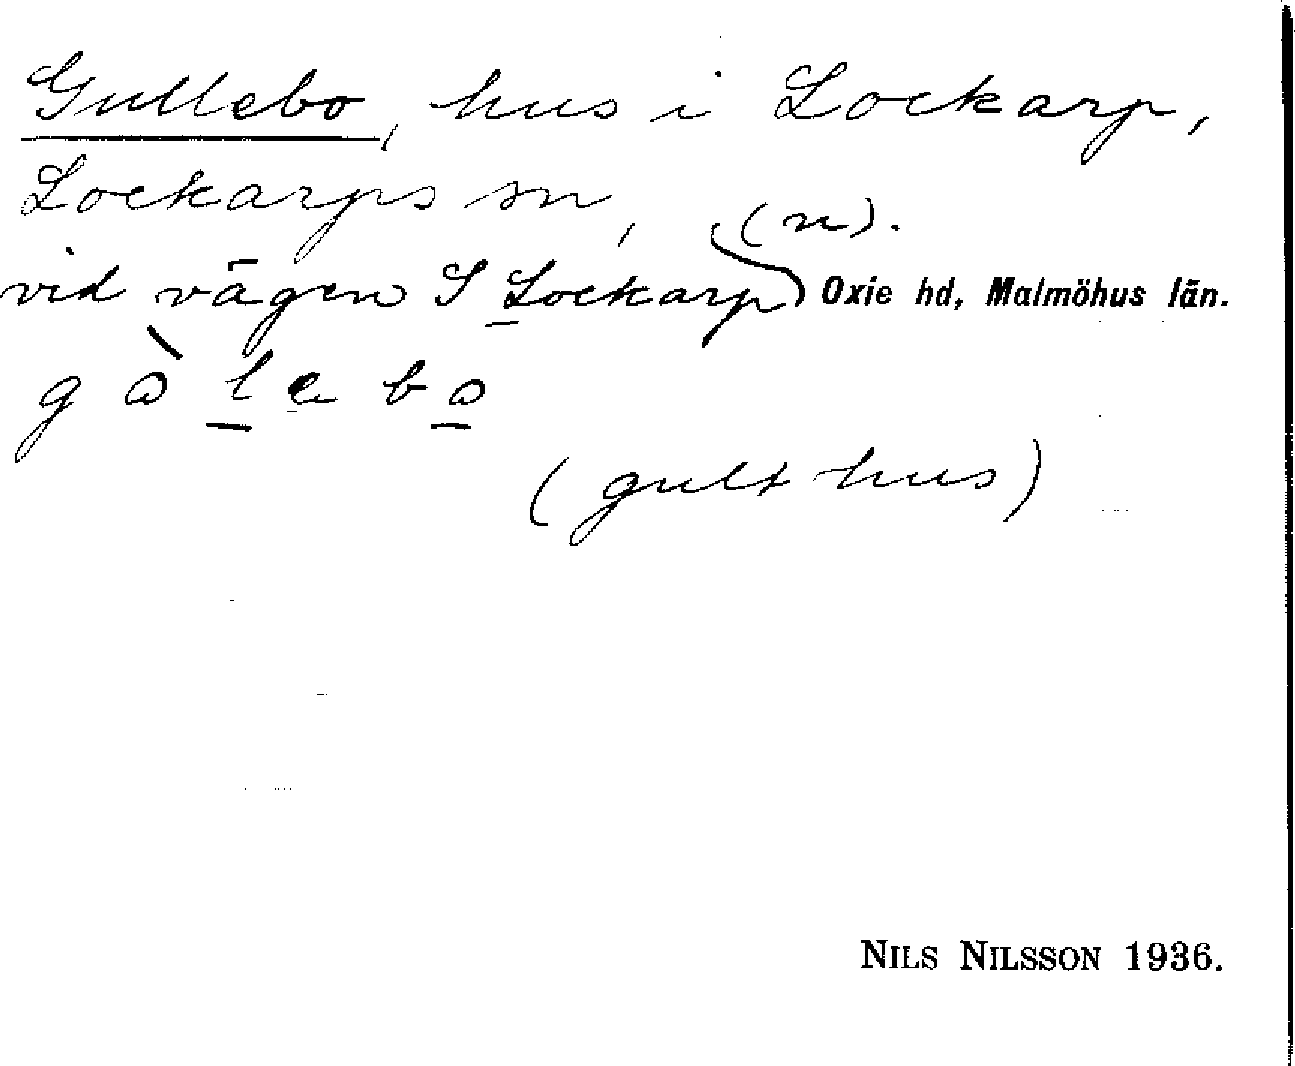 Gullebo, hus i Lockarp,
Lockarps sn,
(n).
vid vägen S Lockarp) Oxie hd, Malmöhus län.
gòlebo
(gult hus)
NILS NILSSON 1936.